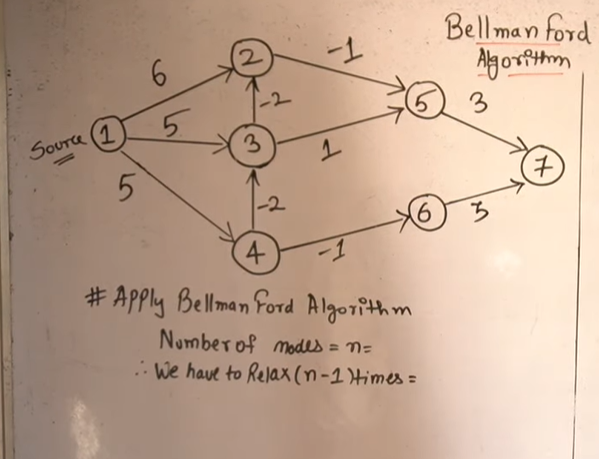 Bellman Ford
Algorithm
6
-1
2
5
3
-2
Source
1
5
3
1
7
5
-2
6
3
4
-1
# Apply Bellman Ford Algorithm
Number of nodes = n=
∴ We have to Relax (n-1) times =